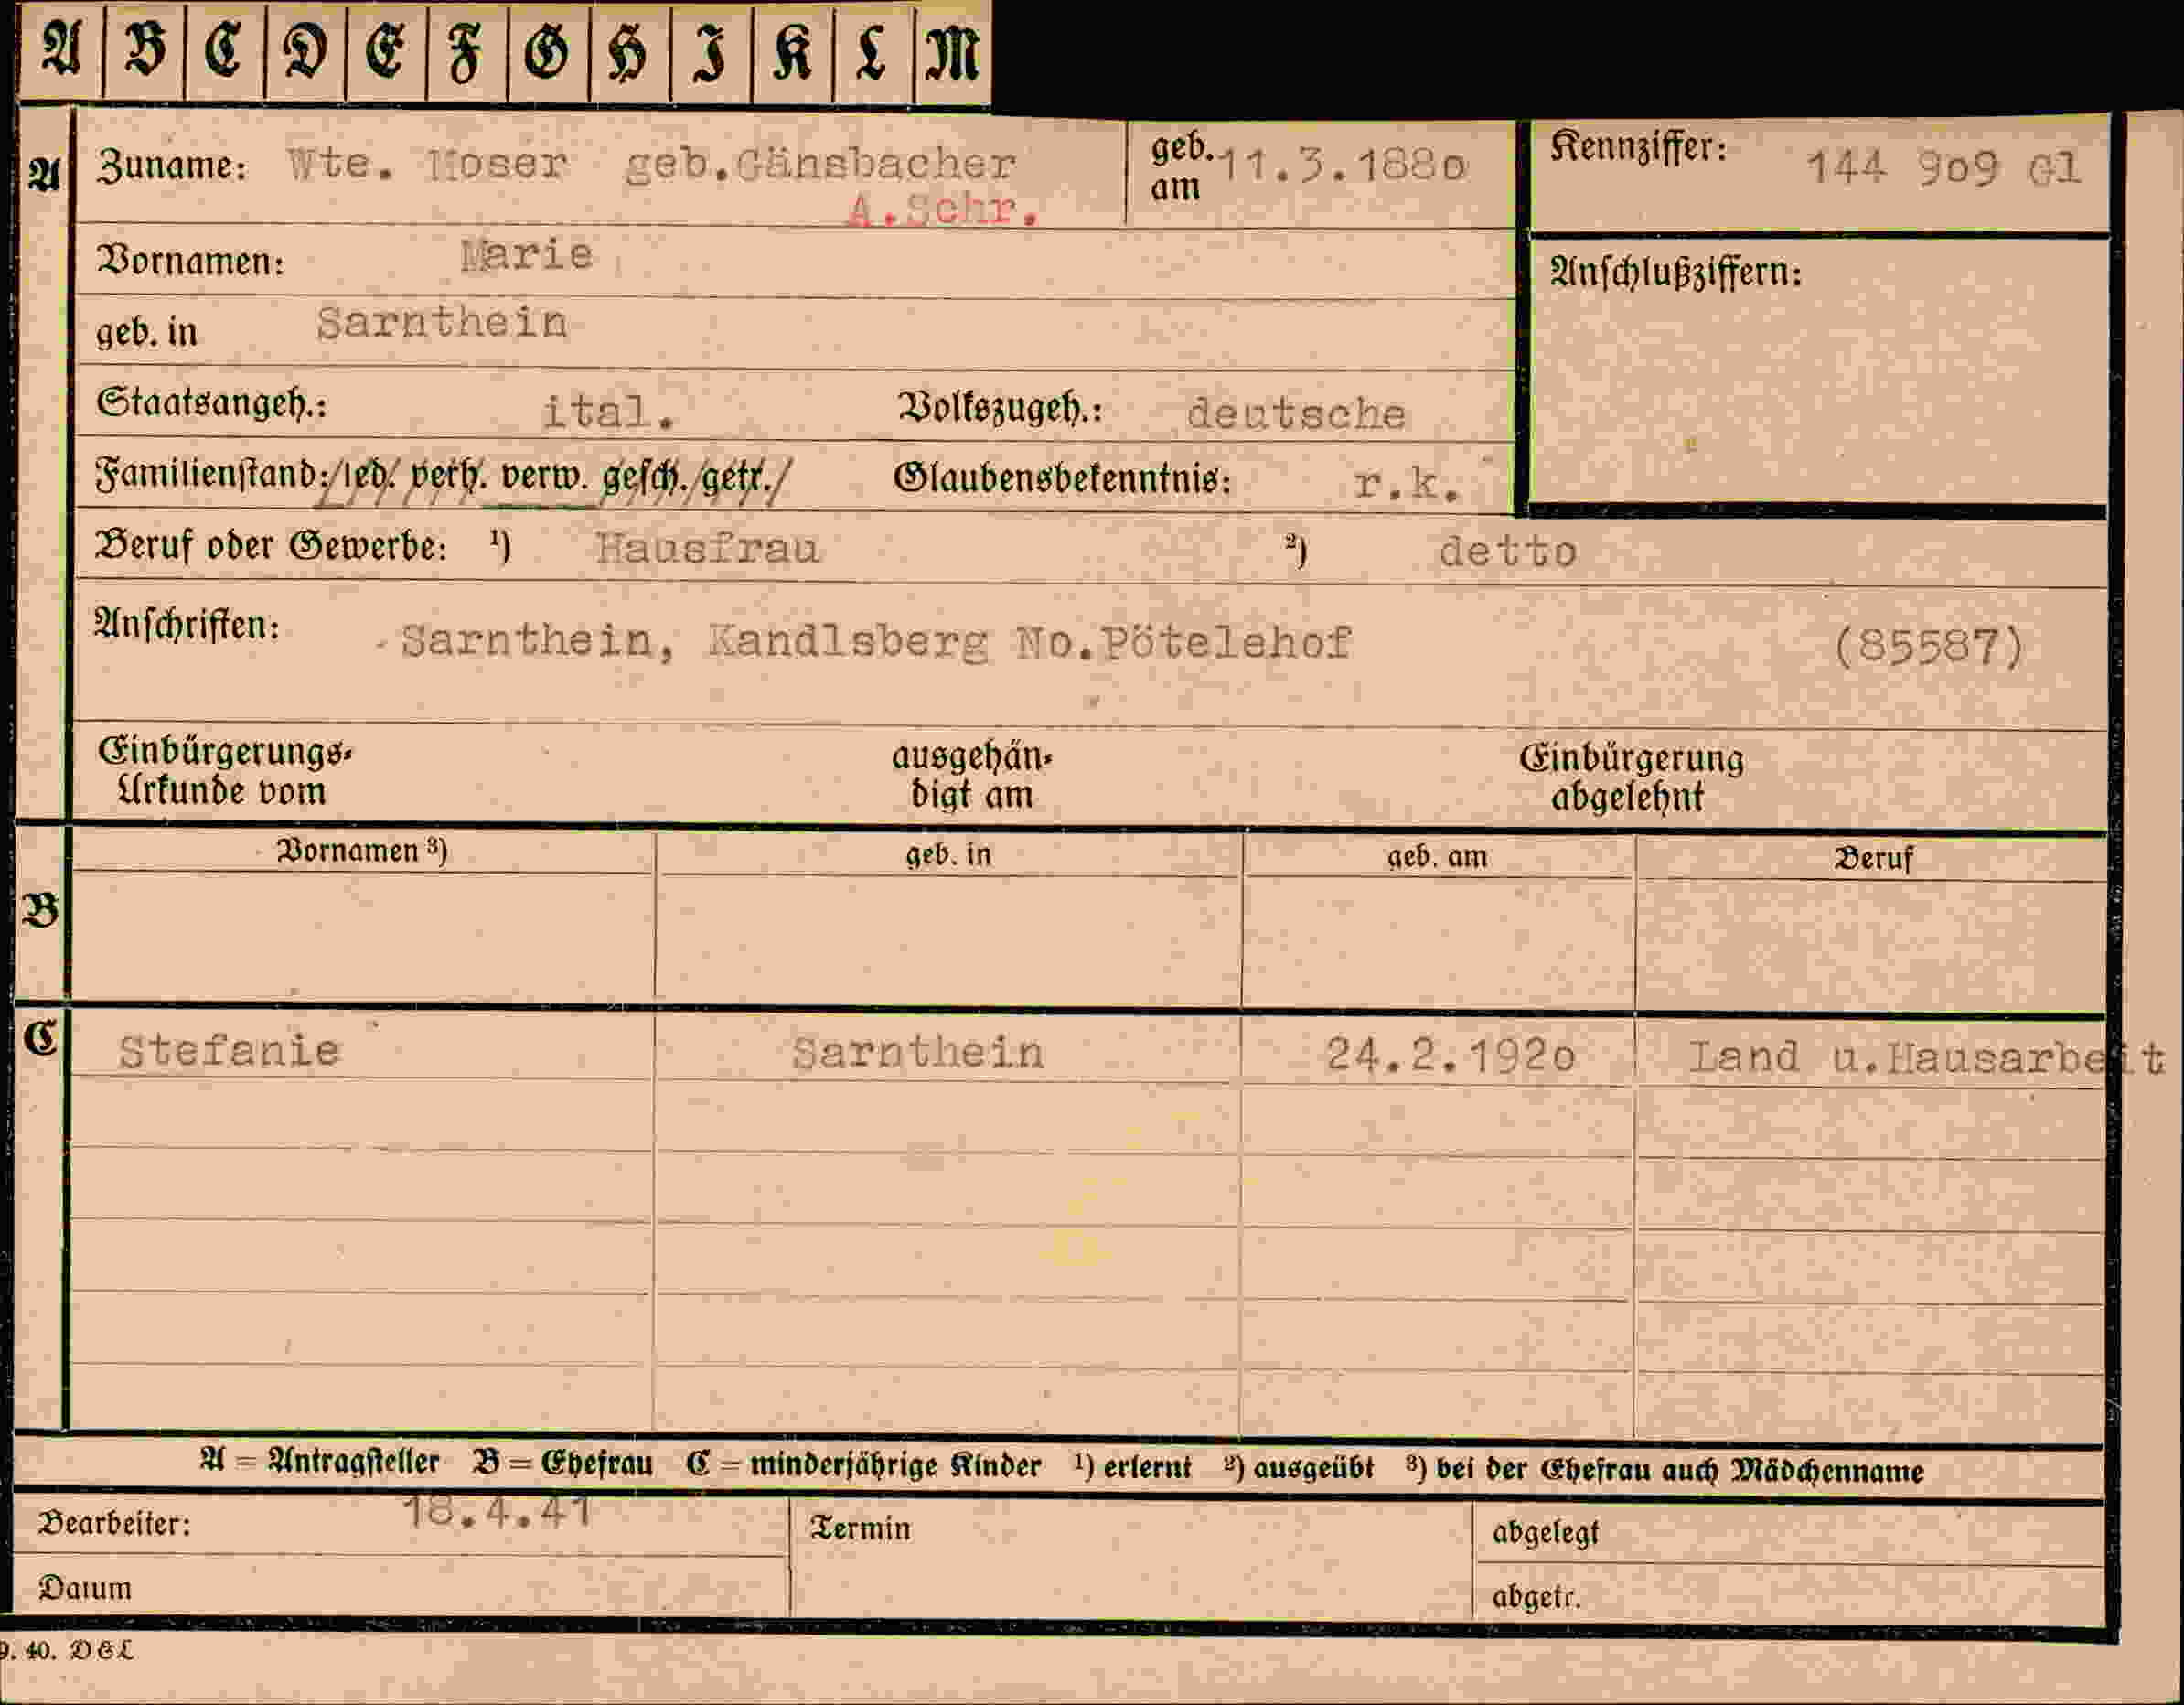 A B C D E F G H I K L M
A Zuname: Wte. Moser geb.Gänsbacher geb. am 11.3.1880 Kennziffer: 144 909 Gl
A.Schr.
Vornamen: Marie Anschlußziffern:
geb. in Sarnthein
Staatsangeh.: ital. Volkszugeh.: deutsche
Familienstand: led. verh. verw. gesch. getr. Glaubensbekenntnis: r.k.
Beruf oder Gewerbe: ¹) Hausfrau ²) detto
Anschriften: Sarnthein, Kandlsberg No.Pötelehof (85587)
Einbürgerungs- ausgehän- Einbürgerung
Urkunde vom digt am abgelehnt
Vornamen ³) geb. in geb. am Beruf
B
C Stefanie Sarnthein 24.2.1920 Land u.Hausarbeit
A = Antragsteller B = Ehefrau C = minderjährige Kinder ¹) erlernt ²) ausgeübt ³) bei der Ehefrau auch Mädchenname
Bearbeiter: 18.4.41 Termin abgelegt
Datum abgetr.
9. 40. DEL